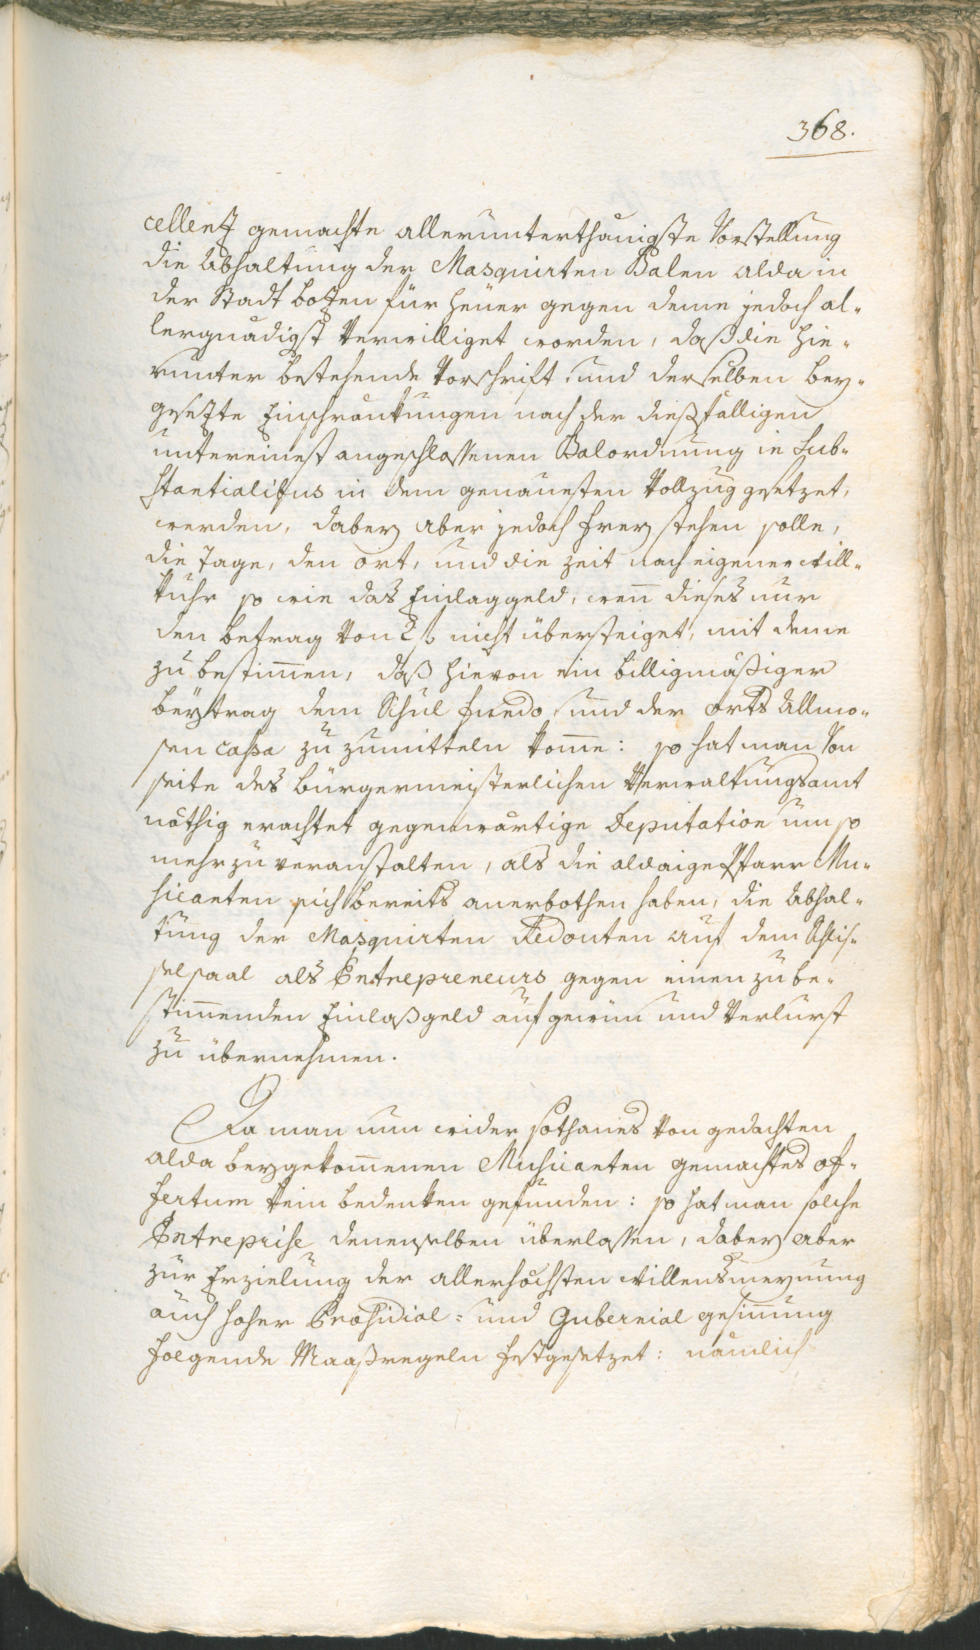 368.
cellenz gemachte allerunterthänigste Vorstellung
die Abhaltung der Masquirten Balen alda in
der Stadt Bozen für heuer gegen deme jedoch al-
lergnädigst Verwilliget worden, daß die hie-
runter bestehende Vorschrift, und derselben bey-
gesezte Einschränkungen nach der dießfälligen
untereinest angeschlossenen Balordnung in Sub-
stantialibus in dem genauesten Vollzug gesetzet,
werden, dabey aber jedoch frey stehen solle,
die Tage, den Ort, und die Zeit nach eigener Will-
kuhr so wie das Einlaggeld, wen̄ dieses nur
den betrag Von 2 f nicht übersteiget, mit deme
zu bestim̄en, daß hievon ein billigmäßiger
beytrag dem Schul fundo, und der Orts Allmo-
sen Cassa zu zumitteln kom̄e: so hat man Von
seite des Bürgermeisterlichen Verwaltungsamt
nöthig erachtet gegenwärtige Deputation um so
mehr zu veranstalten, als die aldaige Pfarr Mu-
sicanten sich bereits anerbothen haben, die Abhal-
tung der Masquirten Redouten auf dem Schis-
selsaal als Entrepreneurs gegen einen zu be-
stim̄enden Einlaßgeld auf gewin̄ und Verlurst
zu übernehmen.
Da man nun wider sothanes Von gedachten
alda beygekom̄enen Musicanten gemachtes of-
fertum kein bedenken gefunden: so hat man solche
Entreprise denenselben überlassen, dabey aber
zur Erzielung der allerhöchsten Willensmeynung
auch hoher Præsidial- und Gubernial gesin̄ung
folgende Maaßregeln festgesetzet: nämlich